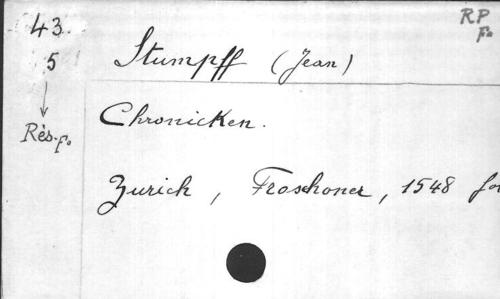 43.
5
Rés. fo
RP
fo
Stumpff (Jean)
Chronicken.
Zurich, Froshoner, 1548 fo